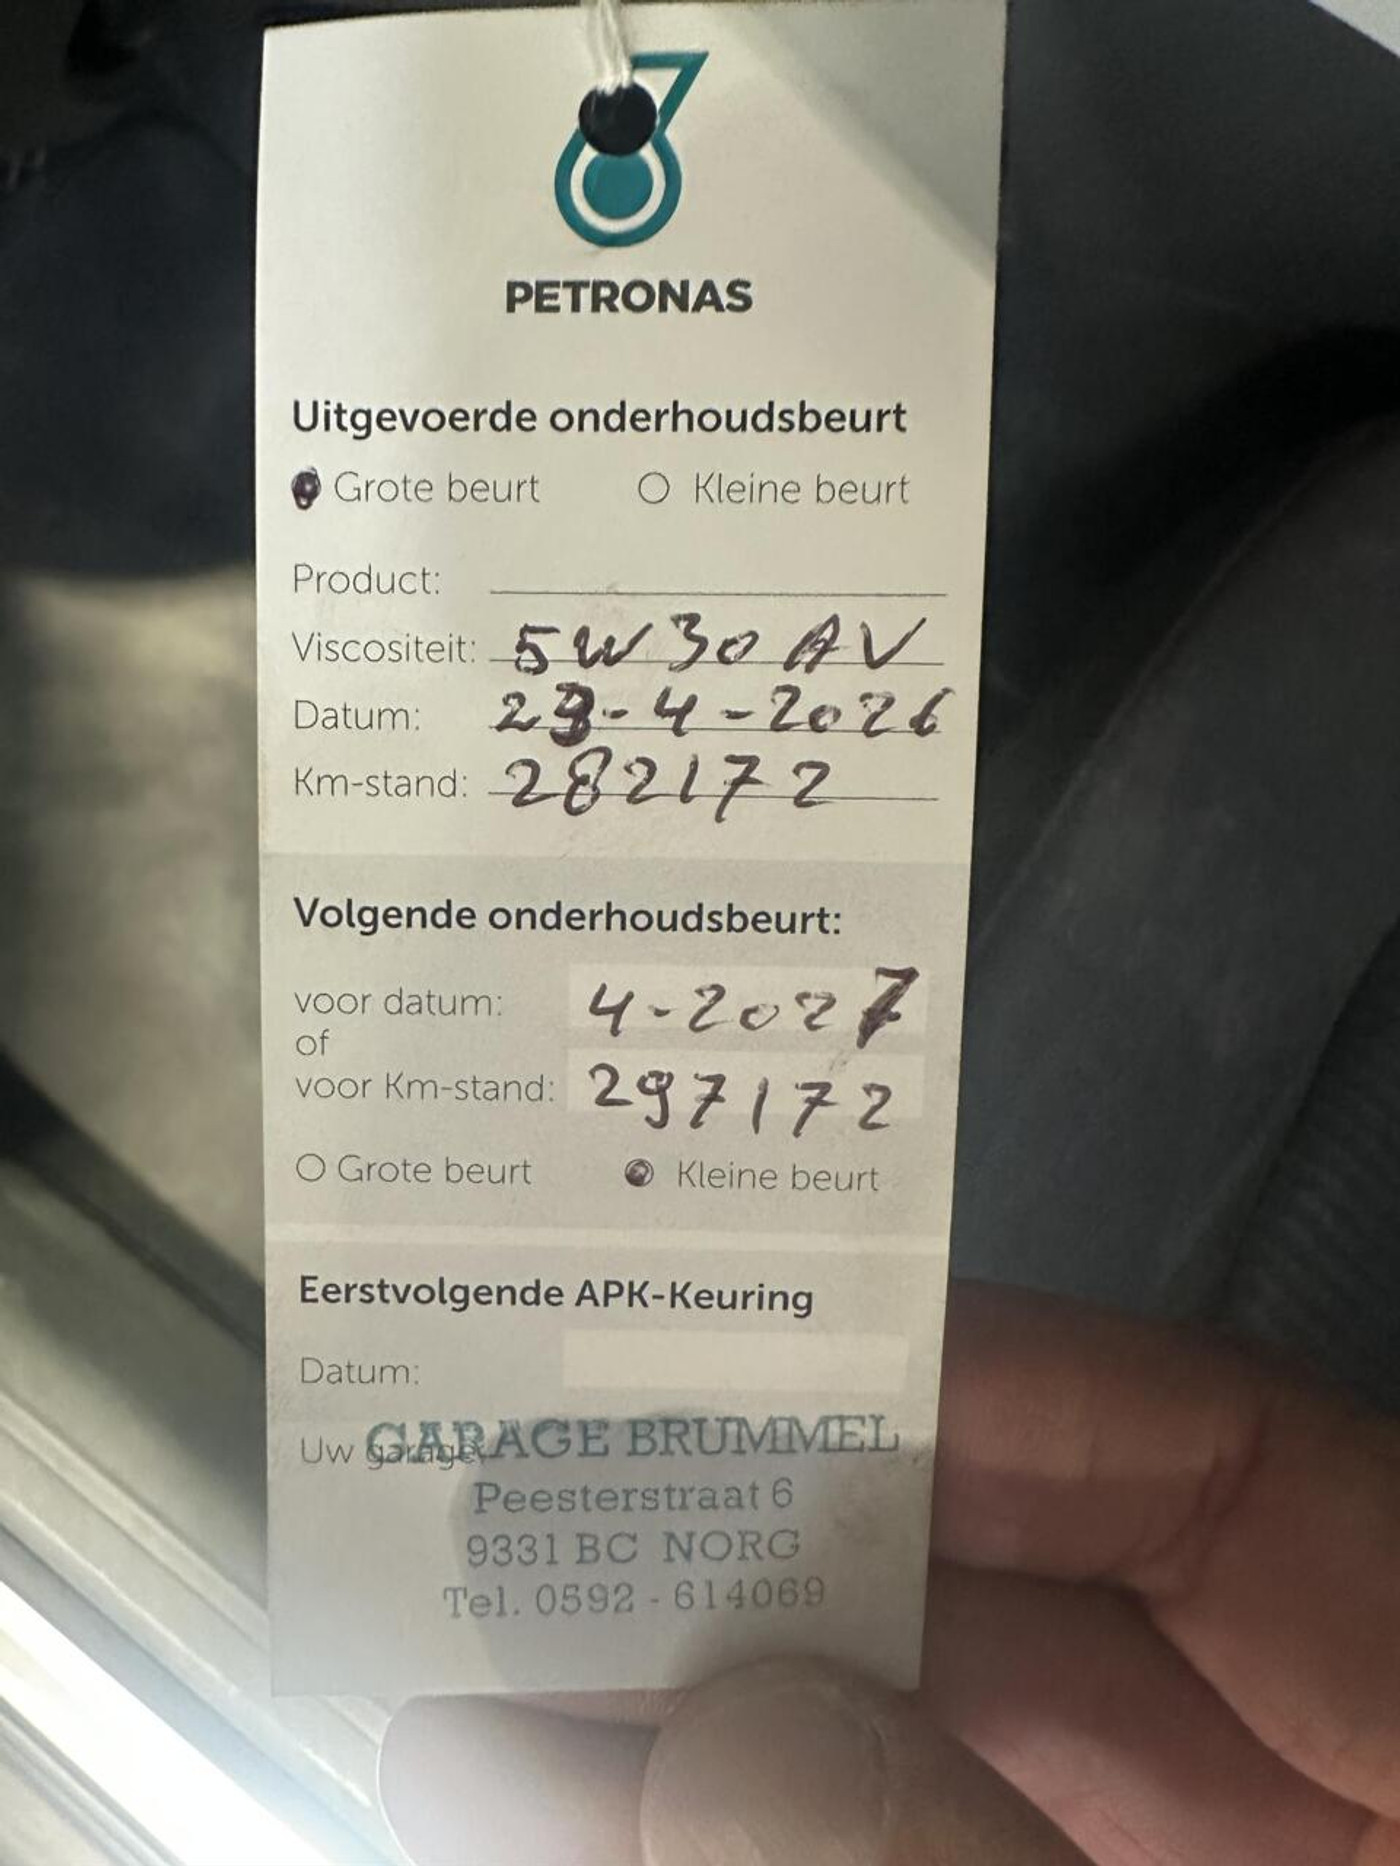 PETRONAS
Uitgevoerde onderhoudsbeurt
Grote beurt Kleine beurt
Product:
Viscositeit: 5W30 AV
Datum: 23-4-2026
Km-stand: 282172
Volgende onderhoudsbeurt:
voor datum: 4-2027
of
voor Km-stand: 297172
Grote beurt Kleine beurt
Eerstvolgende APK-Keuring
Datum:
Uw garage: GARAGE BRUMMEL
Peesterstraat 6
9331 BC NORG
Tel. 0592 - 614069